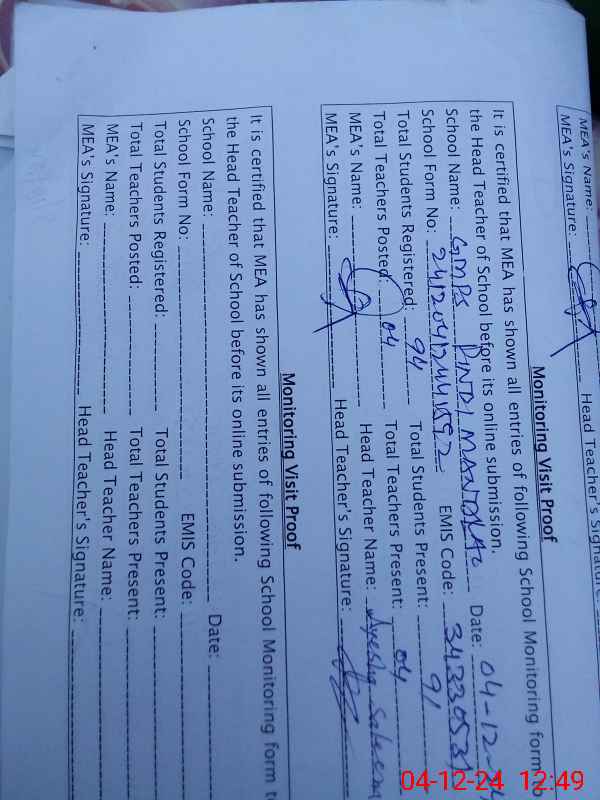 MEA's Name:
MEA's Signature: Head Teacher's Signature:
Monitoring Visit Proof
It is certified that MEA has shown all entries of following School Monitoring form to
the Head Teacher of School before its online submission.
School Name: GMPS PINDI MANDLAO Date: 04-12-24
School Form No: EMIS Code: 34330531
Total Students Registered: 94 Total Students Present: 91
Total Teachers Posted: 04 Total Teachers Present: 04
MEA's Name: Head Teacher Name: Ayesha Saleem
MEA's Signature: Head Teacher's Signature:
Monitoring Visit Proof
It is certified that MEA has shown all entries of following School Monitoring form to
the Head Teacher of School before its online submission.
School Name: Date:
School Form No: EMIS Code:
Total Students Registered: Total Students Present:
Total Teachers Posted: Total Teachers Present:
MEA's Name: Head Teacher Name:
MEA's Signature: Head Teacher's Signature:
04-12-24 12:49